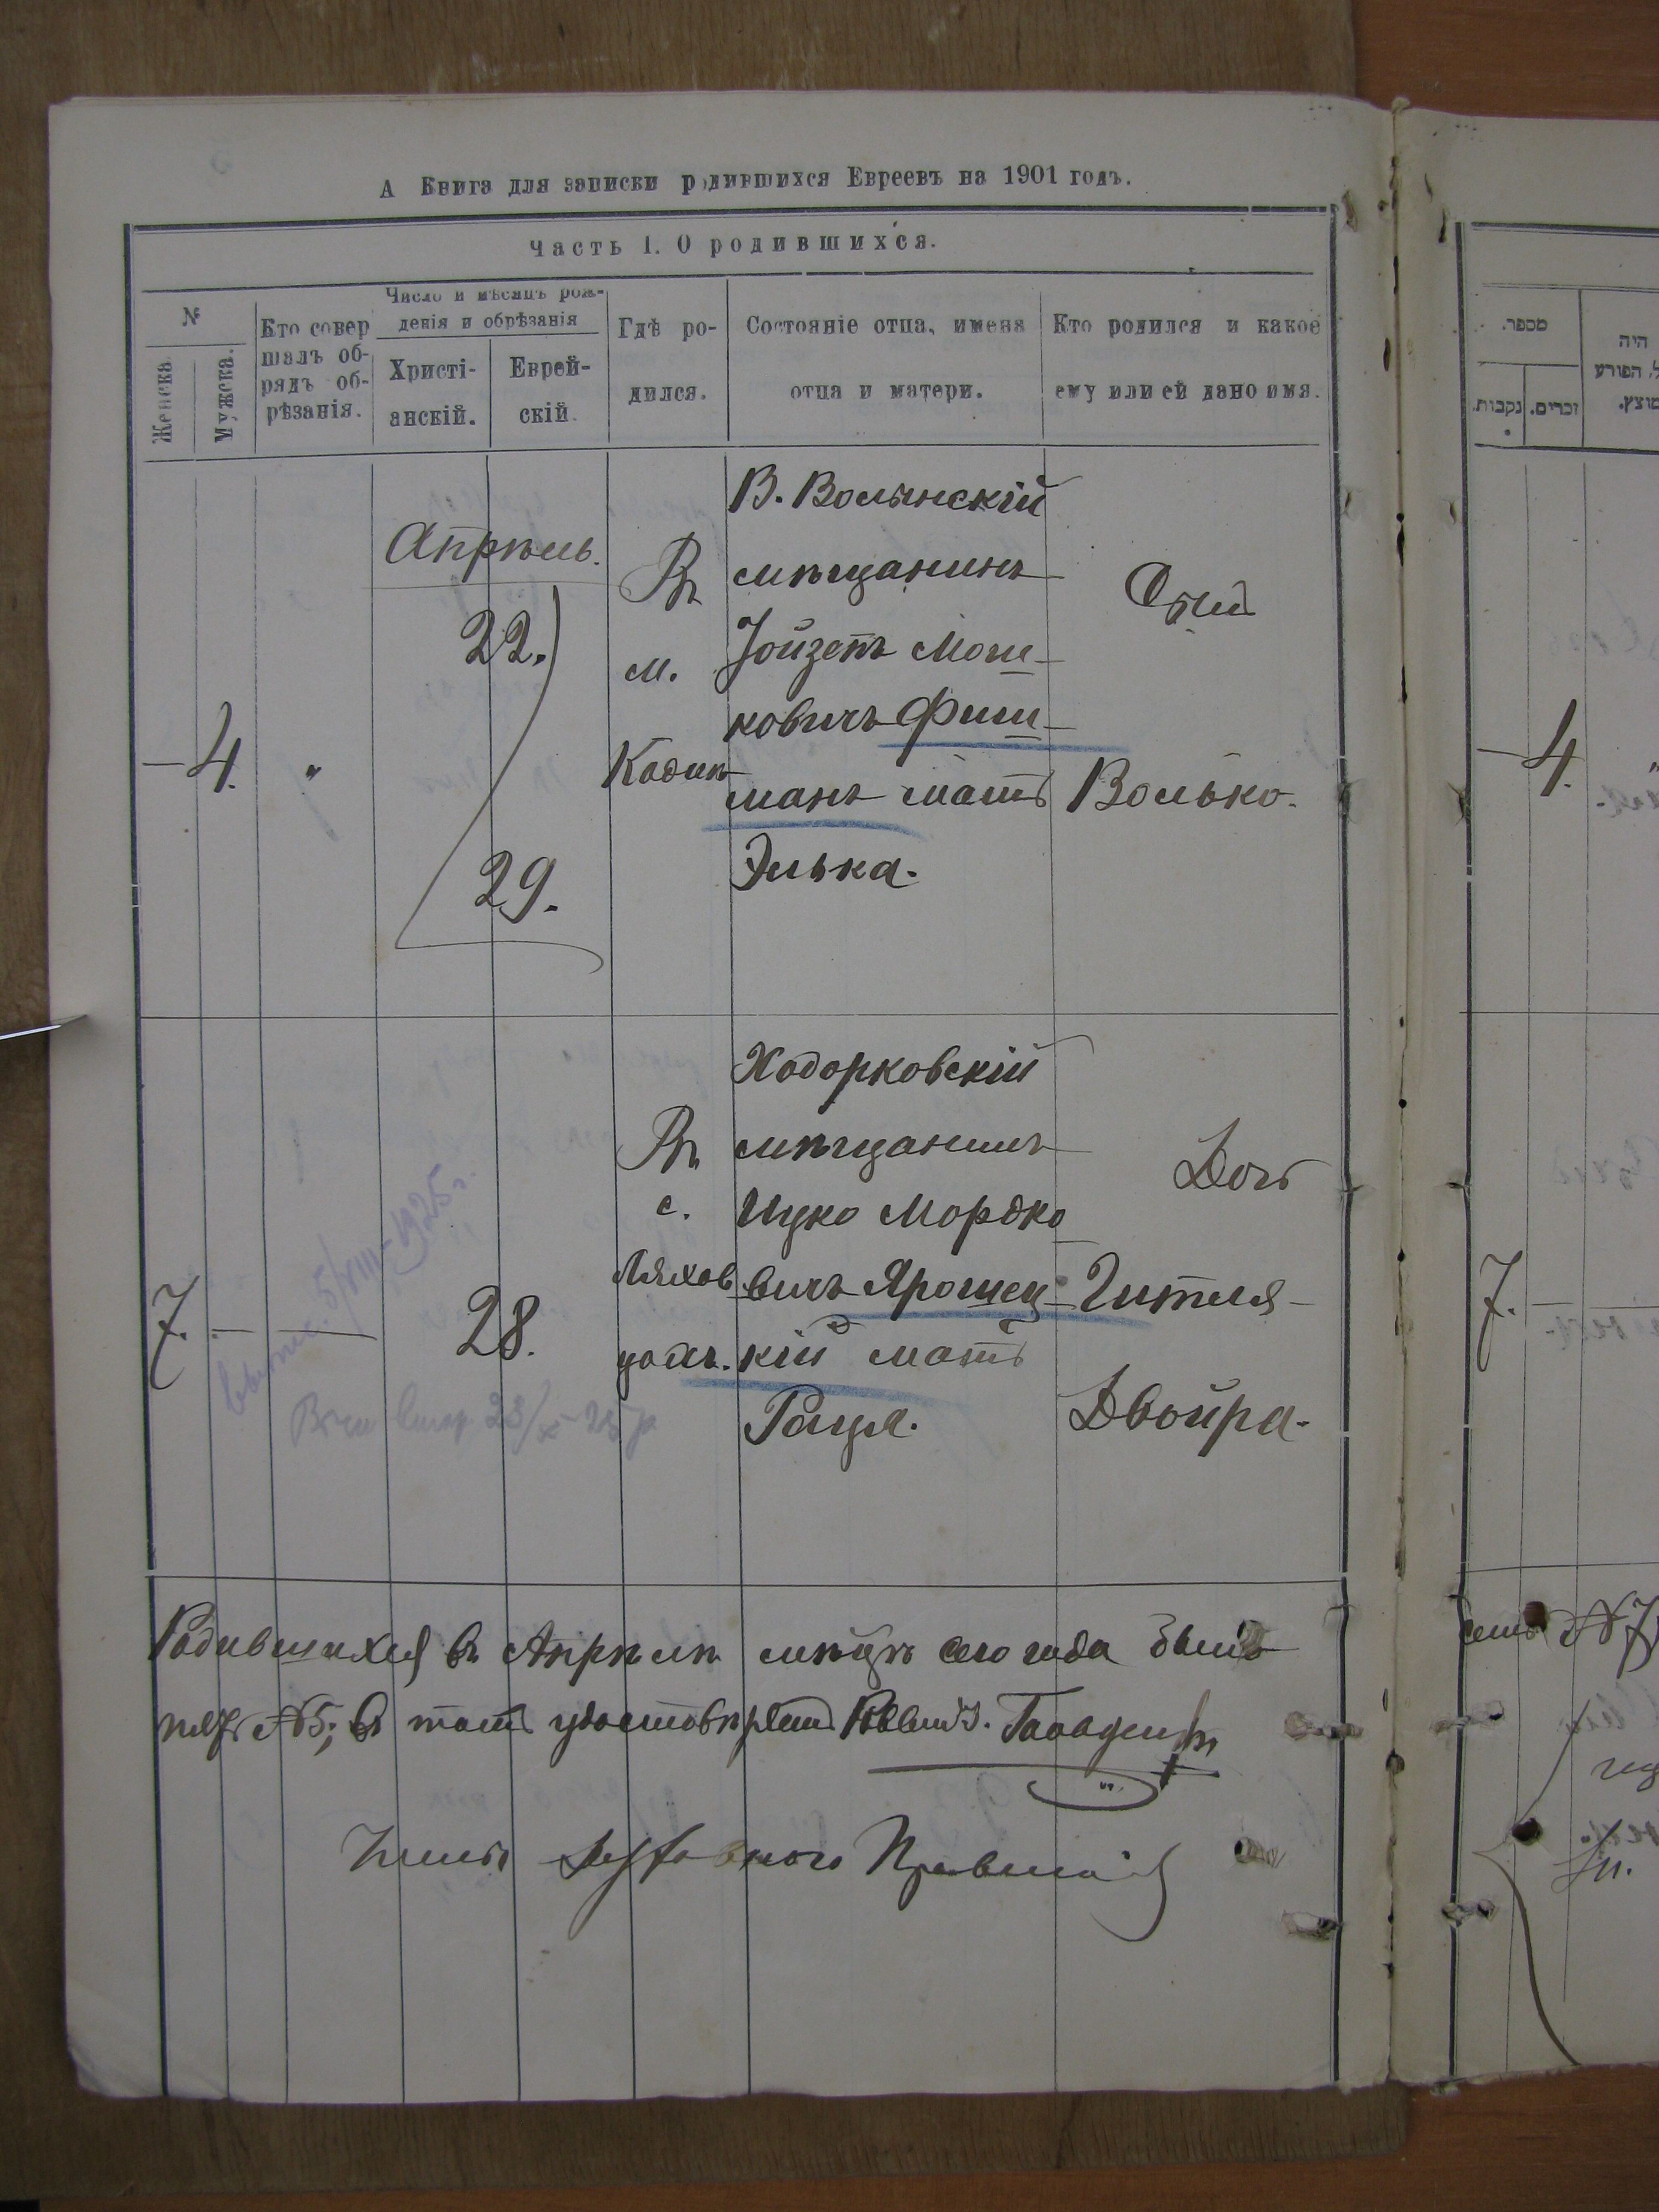 А Книга для записки родившихся Евреевъ на 1901 годъ.
Часть I. О родившихся.
№
Женска.
Мужска.
Кто совер
шалъ об-
рядъ об-
рѣзанія.
Число и мѣсяцъ рож-
денія и обрѣзанія
Христі-
анскій.
Еврей-
скій.
Гдѣ ро-
дился.
Состояніе отца, имена
отца и матери.
Кто родился и какое
ему или ей дано имя.
4.
"
Апрѣль.
22.
29.
Въ
м.
Кодин
В. Волынскій
мѣщанинъ
Іойзепъ Мош-
ковичъ Фиш-
манъ мать
Элька.
Сынъ
Волько.
7.
28.
Въ
с.
Ляхов
цахъ.
Ходорковскій
мѣщанинъ
Ицко Мордко
вичъ Ярошец-
кій мать
Рация.
Дочь
Гитля-
Двойра.
5/VIII-1925г.
Родившихся въ Апрѣлѣ мѣцѣ сего года было
пять №5; въ томъ удостовѣряетъ
Членъ
מספר.
נקבות.
זכרים.
היה
4.
7.
№7